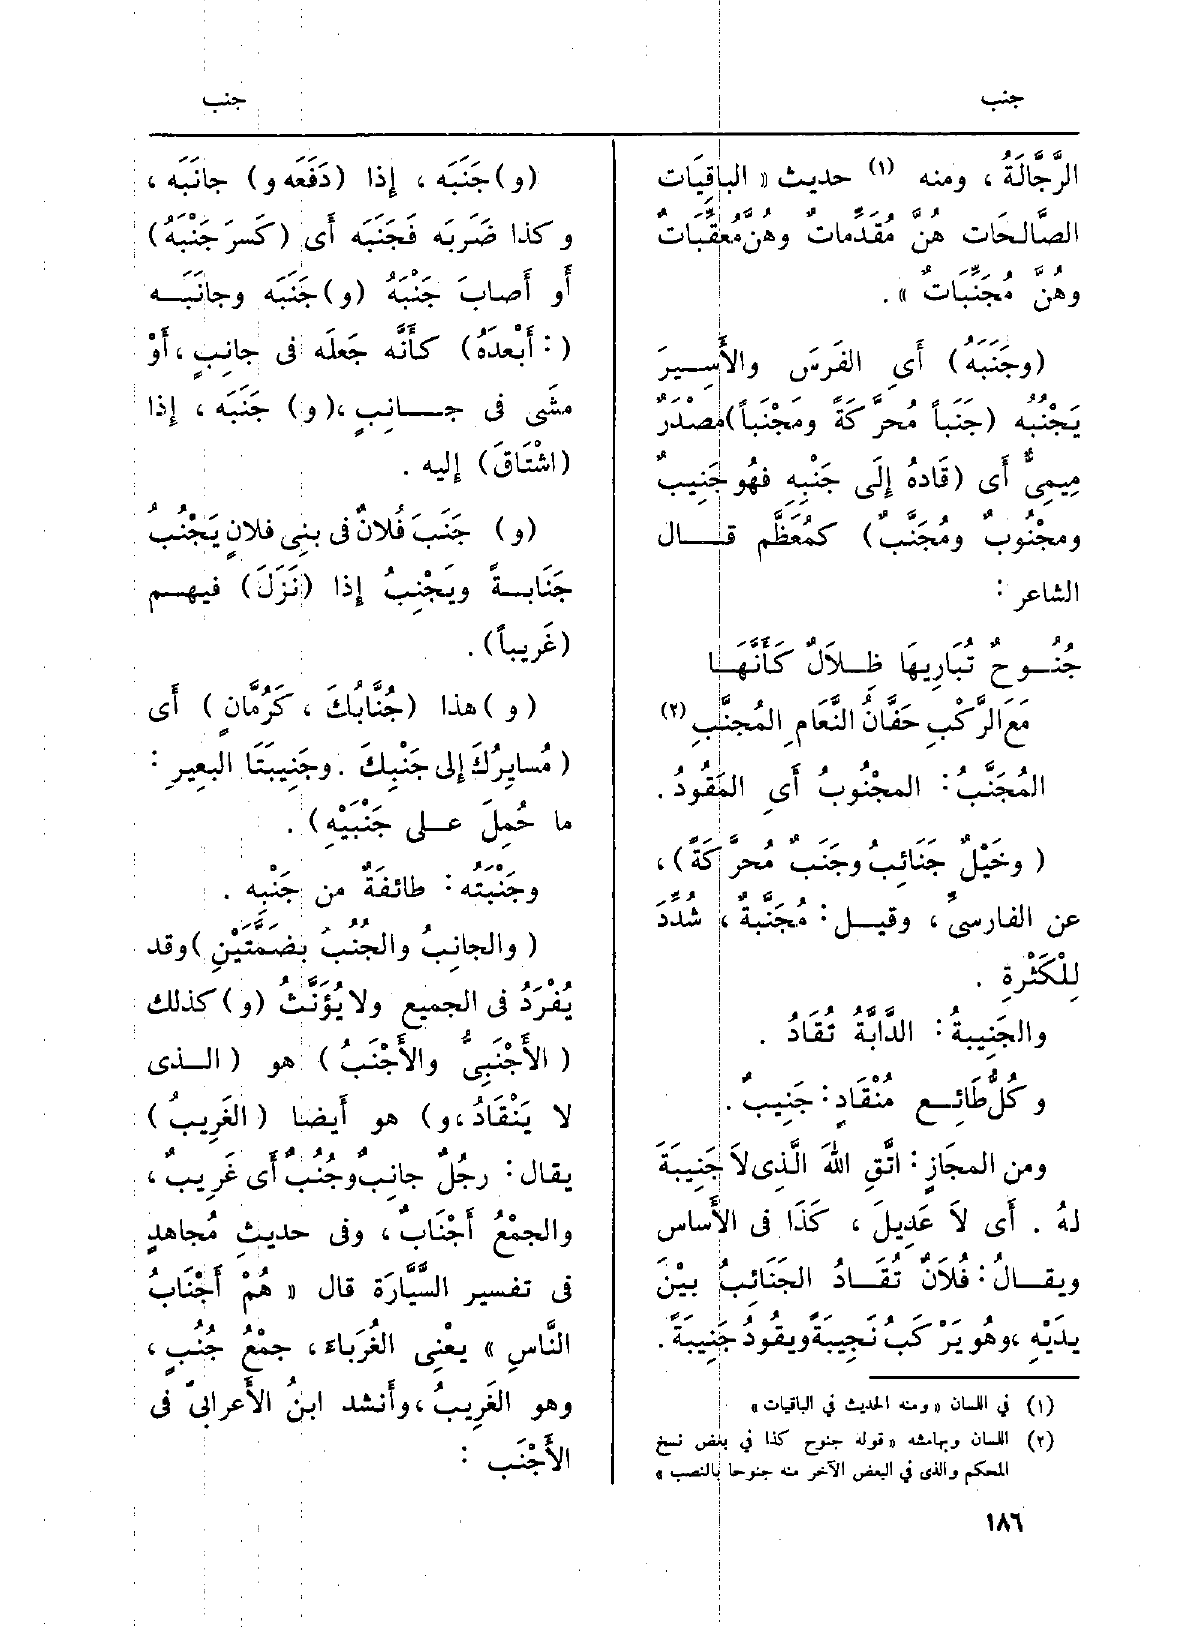 جنب
جنب
الرَّجَّالَةُ ، ومنه (١) حديث « الباقِيَات
الصَّالحَات هُنَّ مُقَدِّماتٌ وهن مُعَقِّبَاتٌ
وهُنَّ مُجَنِّبَاتٌ » .
(وجَنَبَهُ) أَىِ الفَرَسَ والأَسِيرَ
يَجْنُبُه (جَنَباً مُحرَّكَةً ومَجْنَباً) مَصْدَرٌ
مِيمِىٌّ أَى (قَادهُ إِلَى جَنْبِهِ فهُو جَنِيبٌ
ومجْنُوبٌ ومُجَنَّبٌ) كمُعَظَّمٍ قال
الشاعر :
جُنُوحٌ تُبَارِيهَا ظِلَالٌ كَأَنَّهَا
مَعَ الرَّكْبِ حَفَّانُ النَّعَامِ المُجَنَّبِ (٢)
المُجَنَّبُ : المجْنُوبُ أَىِ المَقُودُ .
( وخَيْلٌ جَنَائبُ وجَنَبٌ مُحرَّكَةً) ،
عن الفارسىِّ ، وقيل : مُجَنَّبةٌ ، شُدِّدَ
لِلْكَثْرةِ .
والجَنِيبةُ : الدَّابَّةُ تُقَادُ .
وكُلُّ طَائِعٍ مُنْقَادٍ : جَنِيبٌ .
ومن المجَازِ : اتَّقِ اللهَ الَّذِى لاَ جَنِيبَةَ
لهُ . أَى لاَ عَدِيلَ ، كَذَا فى الأَساس
ويقالُ : فُلاَنٌ تُقَادُ الجَنَائبُ بيْنَ
يدَيْهِ ، وهُو يَرْكَبُ نَجِيبَةً ويقُودُ جَنِيبَةً .
(١) في اللسان « ومنه الحديث في الباقيات »
(٢) اللسان وبهامشه « قوله جنوح كذا في بعض نسخ
المحكم والذى في البعض الآخر منه جنوحا بالنصب »
(و) جَنَبَه ، إِذا (دَفَعَه و) جانَبَه ،
وكذا ضَرَبَه فَجَنَبَه أَى (كَسرَ جَنْبَهُ)
أَو أَصابَ جَنْبَهُ (و) جَنَبَه وجانَبَه
( : أَبْعدَهُ) كأَنَّه جَعلَه فى جانِبٍ ، أَوْ
مشَى فى جانِبٍ ، (و) جَنَبَه ، إِذا
(اشْتَاقَ) إِليه .
(و) جَنَبَ فُلانٌ فى بنِى فلانٍ يَجْنُبُ
جَنَابةً ويَجْنِبُ إِذا (نَزَلَ) فيهم
(غَرِيباً) .
(و) هذا (جُنَّابُكَ ، كَرُمَّانٍ) أَى
(مُسايِرُكَ إِلى جَنْبِكَ . وجَنِيبَتَا البعيرِ :
ما حُمِلَ على جَنْبَيْهِ) .
وجَنْبَتُه : طائفَةٌ من جَنْبِه .
( والجانِبُ والجُنُبُ بضَمَّتَيْنِ ) وقد
يُفْرَدُ فى الجميع ولا يُؤَنَّثُ (و) كذلك
( الأَجْنَبِىُّ والأَجْنَبُ ) هو (الذى
لا يَنْقَادُ ، و) هو أَيضا ( الغَرِيبُ )
يقال : رجُلٌ جانِبٌ وجُنُبٌ أَى غَرِيبٌ ،
والجمْعُ أَجْنَابٌ ، وفى حديثِ مُجاهدٍ
فى تفسير السَّيَّارَة قال « هُمْ أَجْنَابُ
النَّاسِ » يعْنِى الغُرَباءَ ، جمْعُ جُنُبٍ ،
وهو الغَرِيبُ ، وأَنشد ابنُ الأَعرابىّ فى
الأَجْنَب :
١٨٦